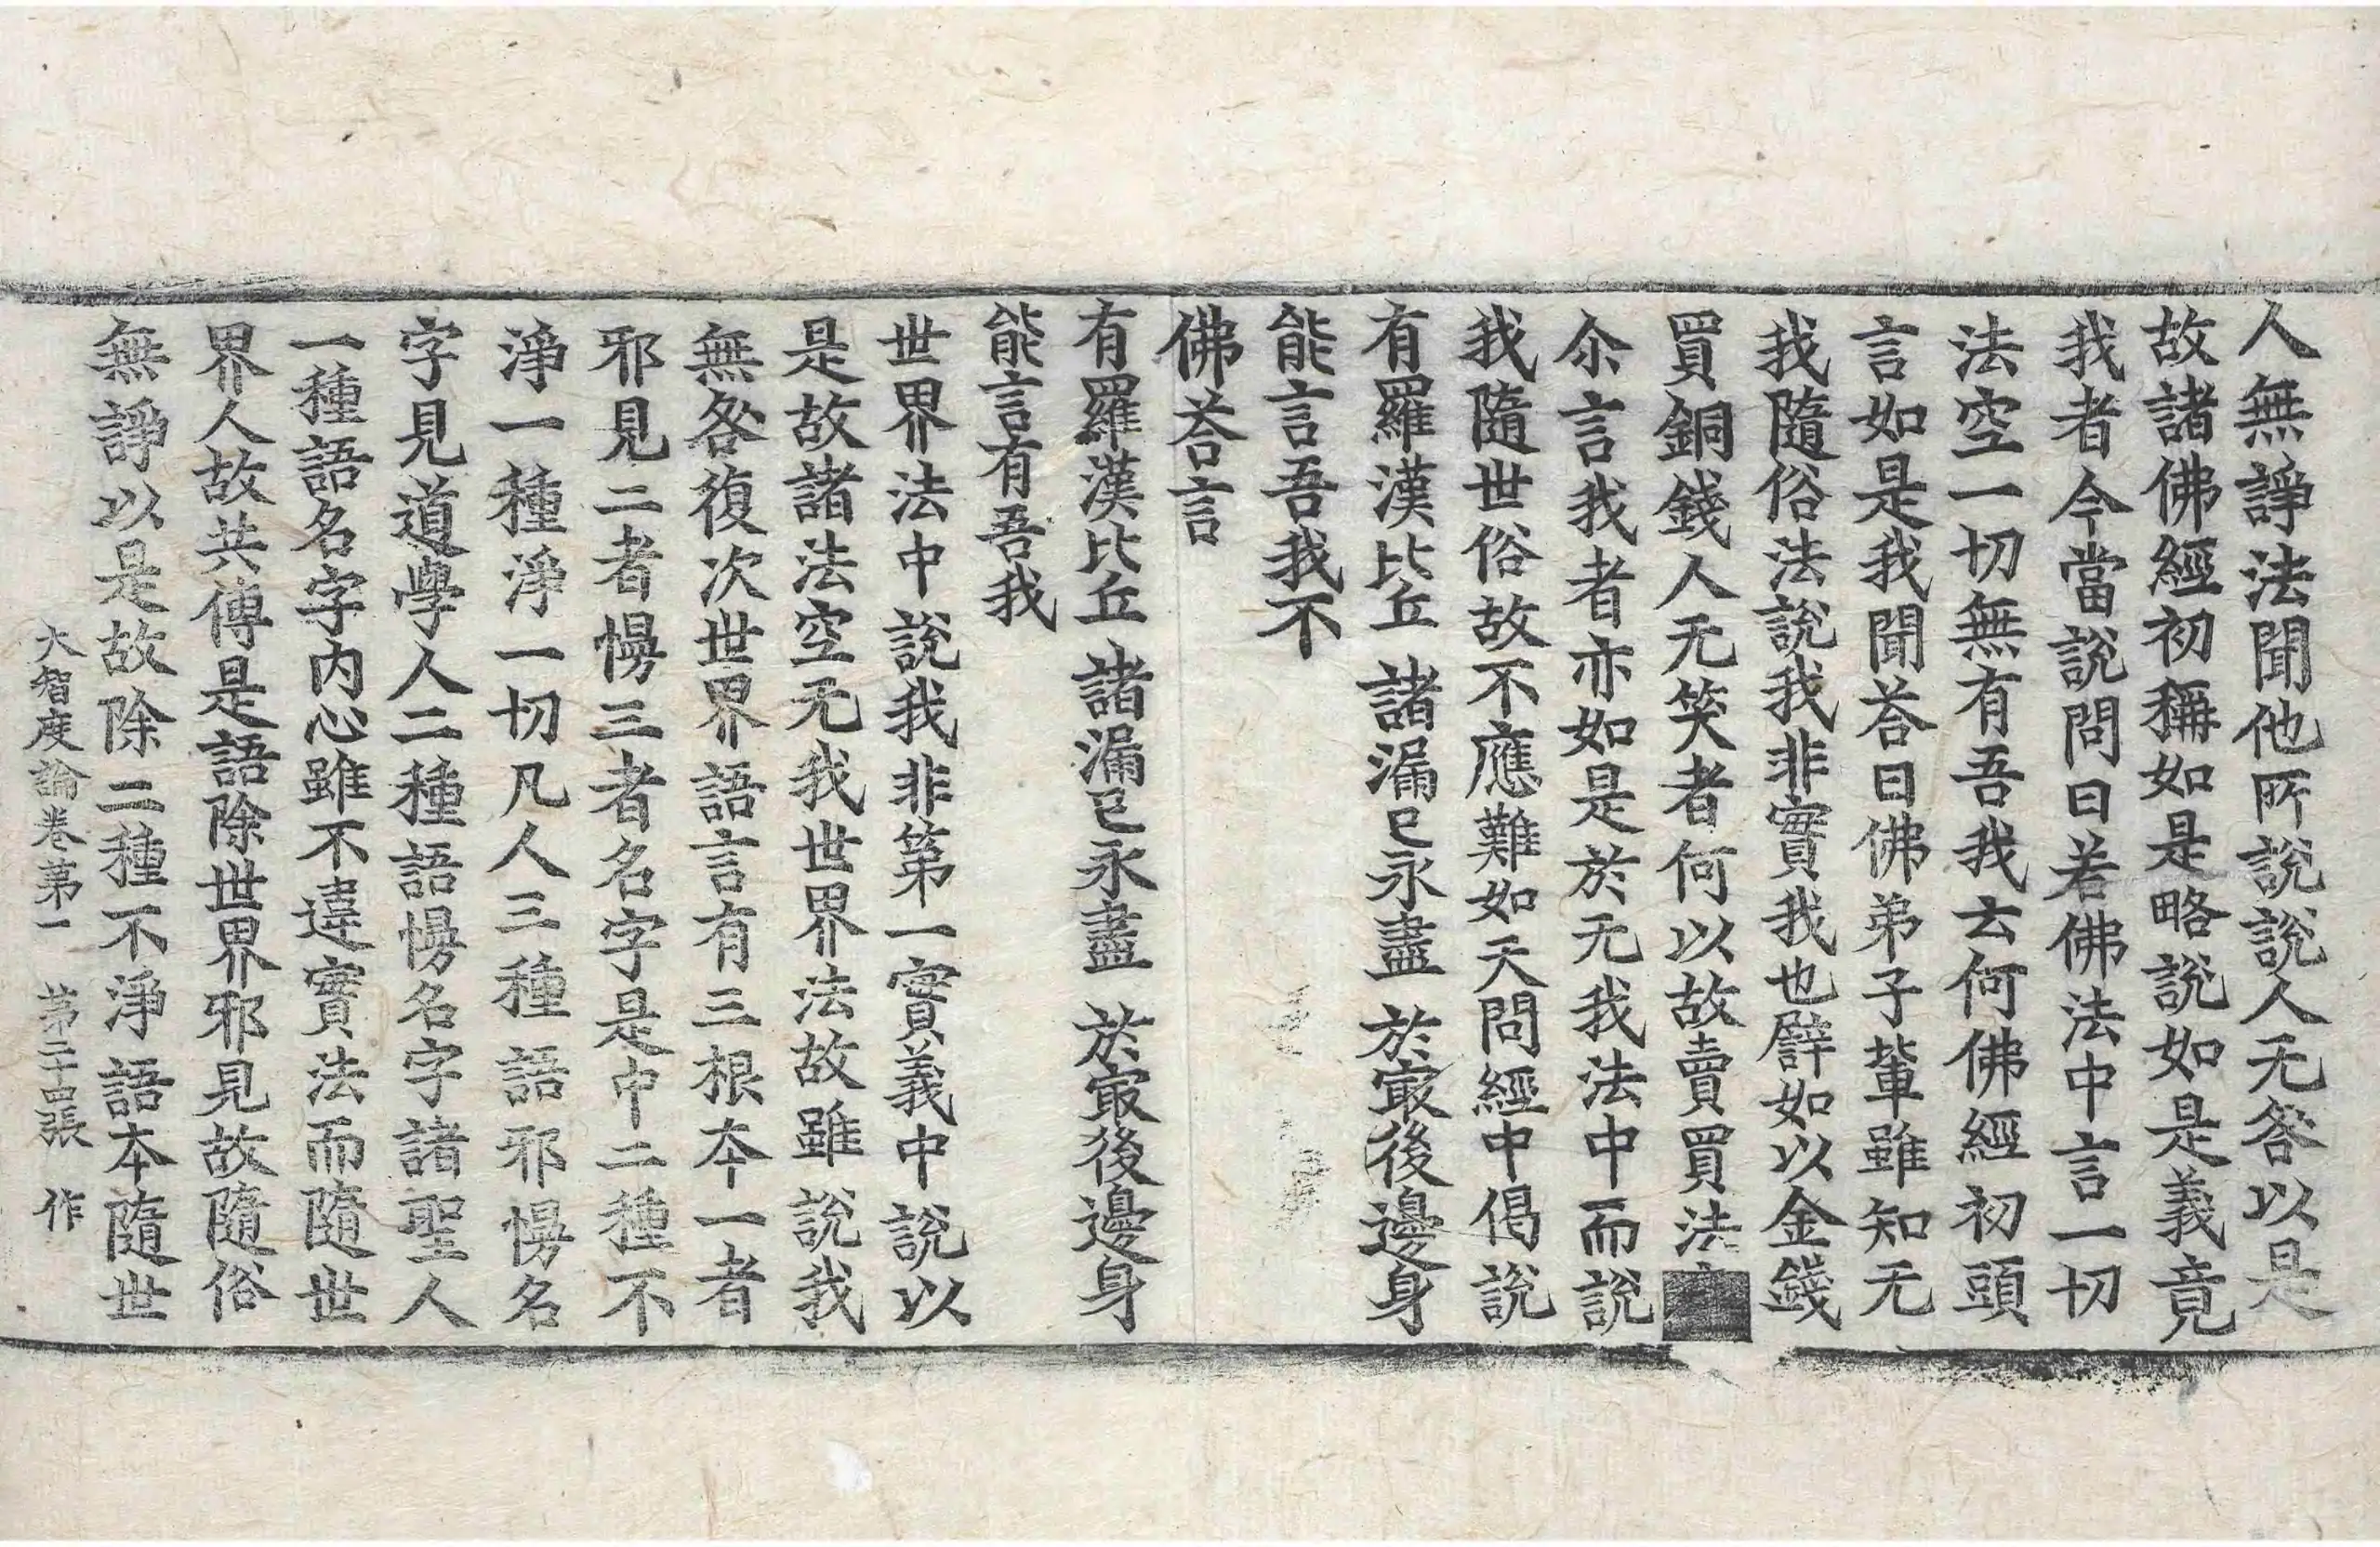 人無諍法聞他所說說人无咎以是
故諸佛經初稱如是略說如是義竟
我者今當說問曰若佛法中言一切
法空一切無有吾我云何佛經初頭
言如是我聞荅曰佛弟子輩雖知无
我隨俗法說我非實我也譬如以金錢
買銅錢人无笑者何以故賣買法
尒言我者亦如是於无我法中而說
我隨世俗故不應難如天問經中偈說
有羅漢比丘 諸漏已永盡 於㝡後邊身
能言吾我不
佛荅言
有羅漢比丘 諸漏已永盡 於㝡後邊身
能言有吾我
世界法中說我非第一實義中說以
是故諸法空无我世界法故雖說我
無咎復次世界語言有三根本一者
邪見二者慢三者名字是中二種不
淨一種淨一切凡人三種語邪慢名
字見道學人二種語慢名字諸聖人
一種語名字内心雖不違實法而隨世
界人故共傳是語除世界邪見故隨俗
無諍以是故除二種不淨語本隨世
大智度論卷第一 第二十四張 作